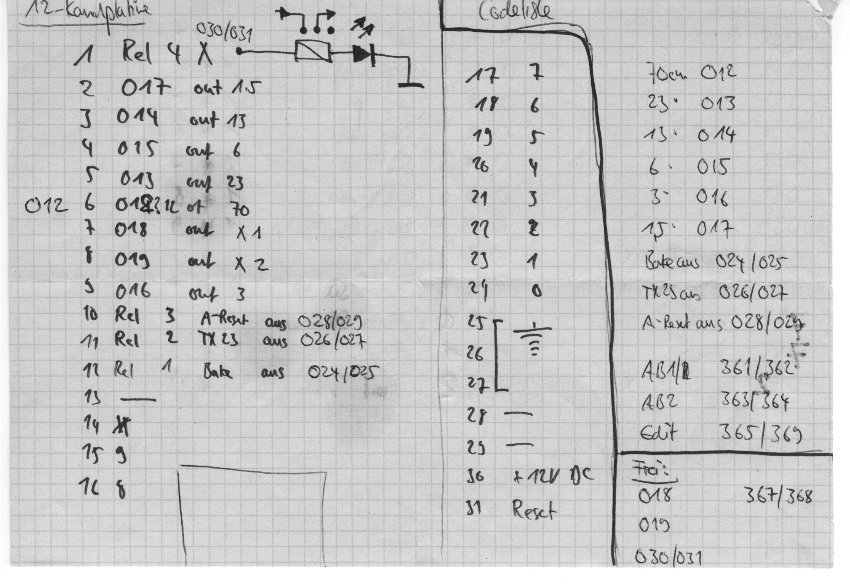 12-Kanalplatine
030/031
1 Rel 4 X
2 017 out 15
3 014 out 13
4 015 out 6
5 013 out 23
012 6 70
7 018 out X1
8 019 out X2
9 016 out 3
10 Rel 3 A-Reset aus 028/029
11 Rel 2 TX23 aus 026/027
12 Rel 1 Bake aus 024/025
13 —
14
15 9
16 8
17 7
18 6
19 5
20 4
21 3
22 2
23 1
24 0
25
26
27
28 —
29 —
30 +12V DC
31 Reset
Codeliste
70cm 012
23" 013
13" 014
6" 015
3" 016
1,5" 017
Bake aus 024/025
TX23 aus 026/027
A-Reset aus 028/029
AB1/ 361/362
AB2 363/364
Edit 365/369
Frei:
018 367/368
019
030/031